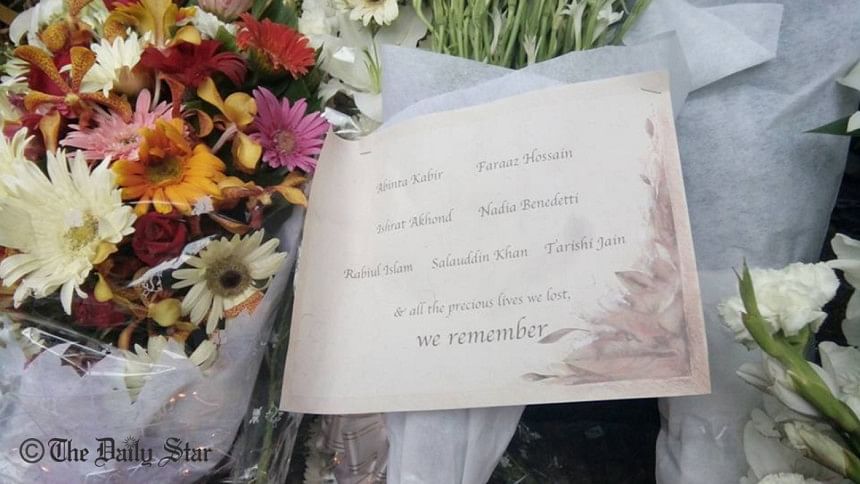 Abinta Kabir Faraaz Hossain
Ishrat Akhond Nadia Benedetti
Rabiul Islam Salauddin Khan Tarishi Jain
& all the precious lives we lost,
we remember
© The Daily Star